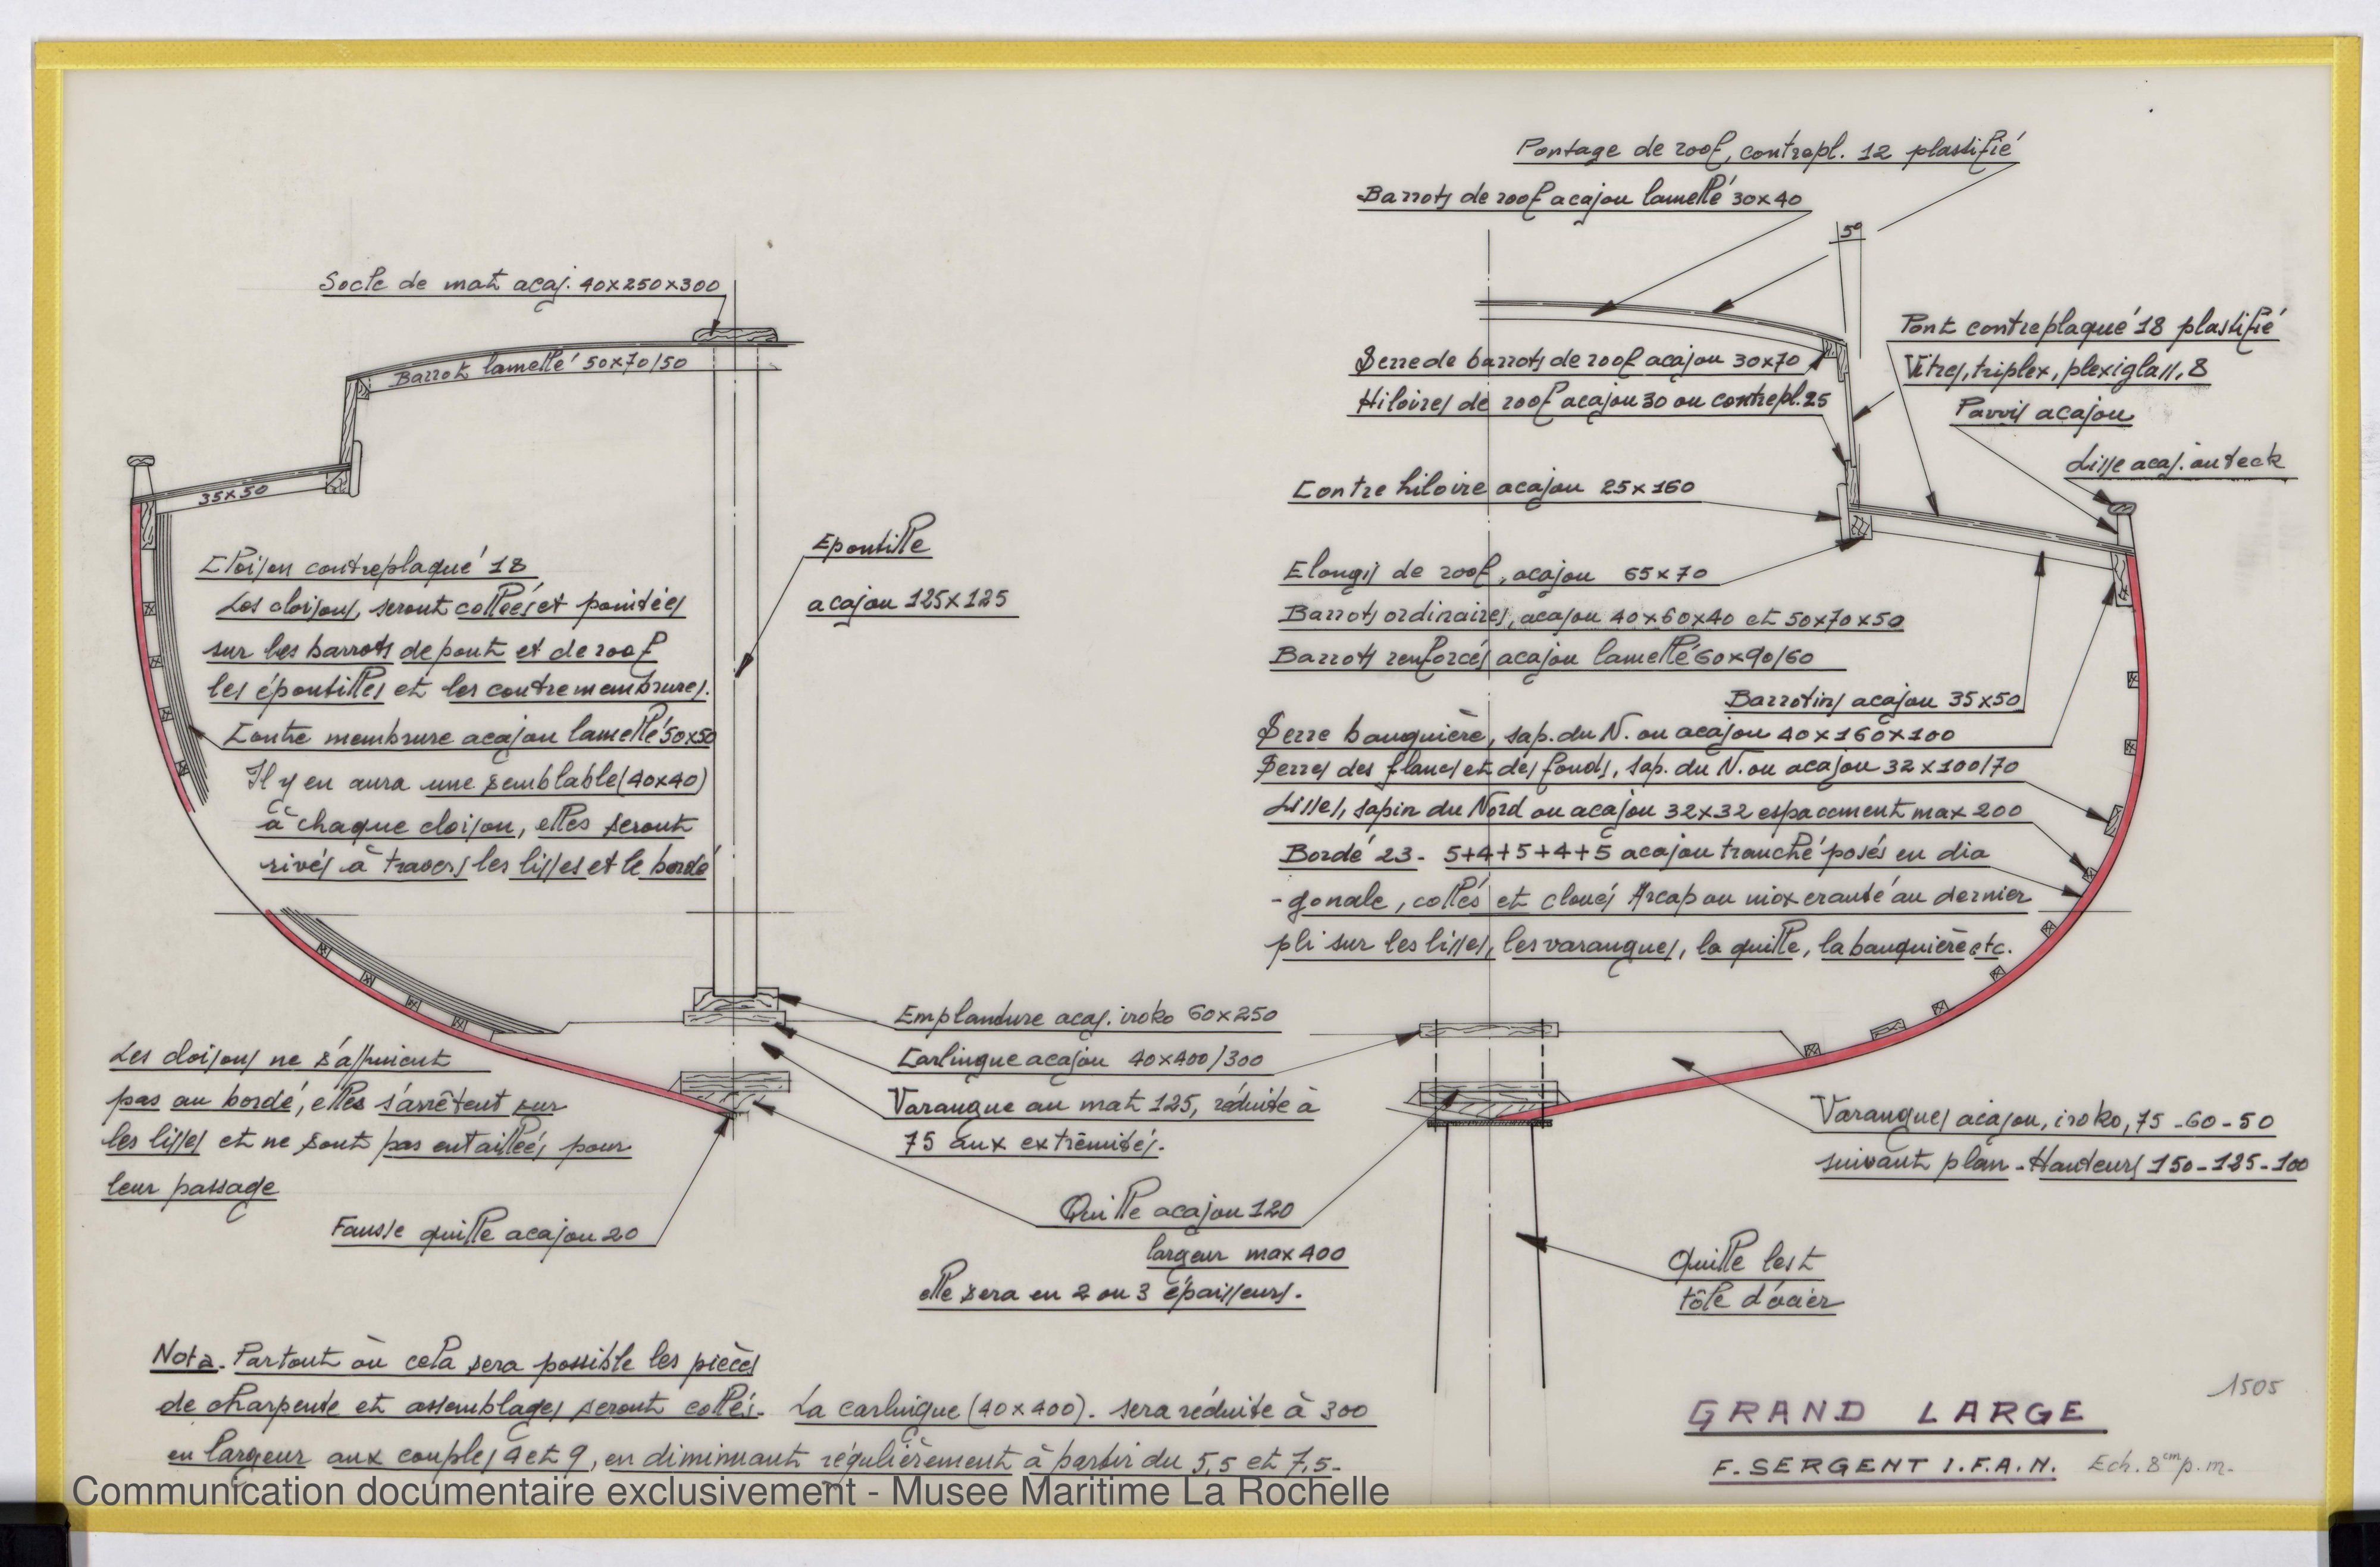 Socle de mat acaj. 40x250x300
Barrot lamellé 50x70/50
35x50
Cloison contreplaqué 18
Les cloisons, seront collées et pointées
sur les barrots de pont et de roof
les épontilles et les contremembrures.
Contre membrure acajou lamellé 50x50
Il y en aura une semblable (40x40)
à chaque cloison, elles seront
rivés à travers les lisses et le bordé
Epontille
acajou 125x125
Les cloisons ne s'appuient
pas au bordé, elles s'arrêtent sur
les lisses et ne sont pas entaillées pour
leur passage
Fausse quille acajou 20
Emplanture acaj. iroko 60x250
Carlingue acajou 40x400/300
Varangue au mat 125, réduite à
75 aux extrêmités.
Quille acajou 120
largeur max 400
elle sera en 2 ou 3 épaisseurs.
Pontage de roof, contrepl. 12 plastifié
Barrots de roof acajou lamellé 30x40
5°
Serre de barrots de roof acajou 30x70
Hiloires de roof acajou 30 ou contrepl. 25
Pont contreplaqué 18 plastifié
Vitres, triplex, plexiglass, 8
Pavois acajou
Lisse acaj. ou teck
Contre hiloire acajou 25x160
Elongis de roof, acajou 65x70
Barrots ordinaires, acajou 40x60x40 et 50x70x50
Barrots renforcés acajou lamellé 60x90/60
Barrotins acajou 35x50
Serre bauquière, sap. du N. ou acajou 40x160x100
Serres des flancs et des fonds, sap. du N. ou acajou 32x100/70
Lisses, sapin du Nord ou acajou 32x32 espacement max 200
Bordé 23 - 5+4+5+4+5 acajou tranché posés en dia
-gonale, collés et cloués Arcap ou inox cranté au dernier
pli sur les lisses, les varangues, la quille, la bauquière etc.
Varangues acajou, iroko, 75 - 60 - 50
suivant plan - Hauteurs 150 - 125 - 100
Quille lest
tôle d'acier
Nota. Partout où cela sera possible les pièces
de charpente et assemblages seront collés. La carlingue (40x400). sera réduite à 300
en largeur aux couples 4 et 9, en diminuant régulièrement à partir du 5,5 et 7,5.
1505
GRAND LARGE
F. SERGENT I.F.A.N. Ech. 8 cm p.m.
Communication documentaire exclusivement - Musee Maritime La Rochelle